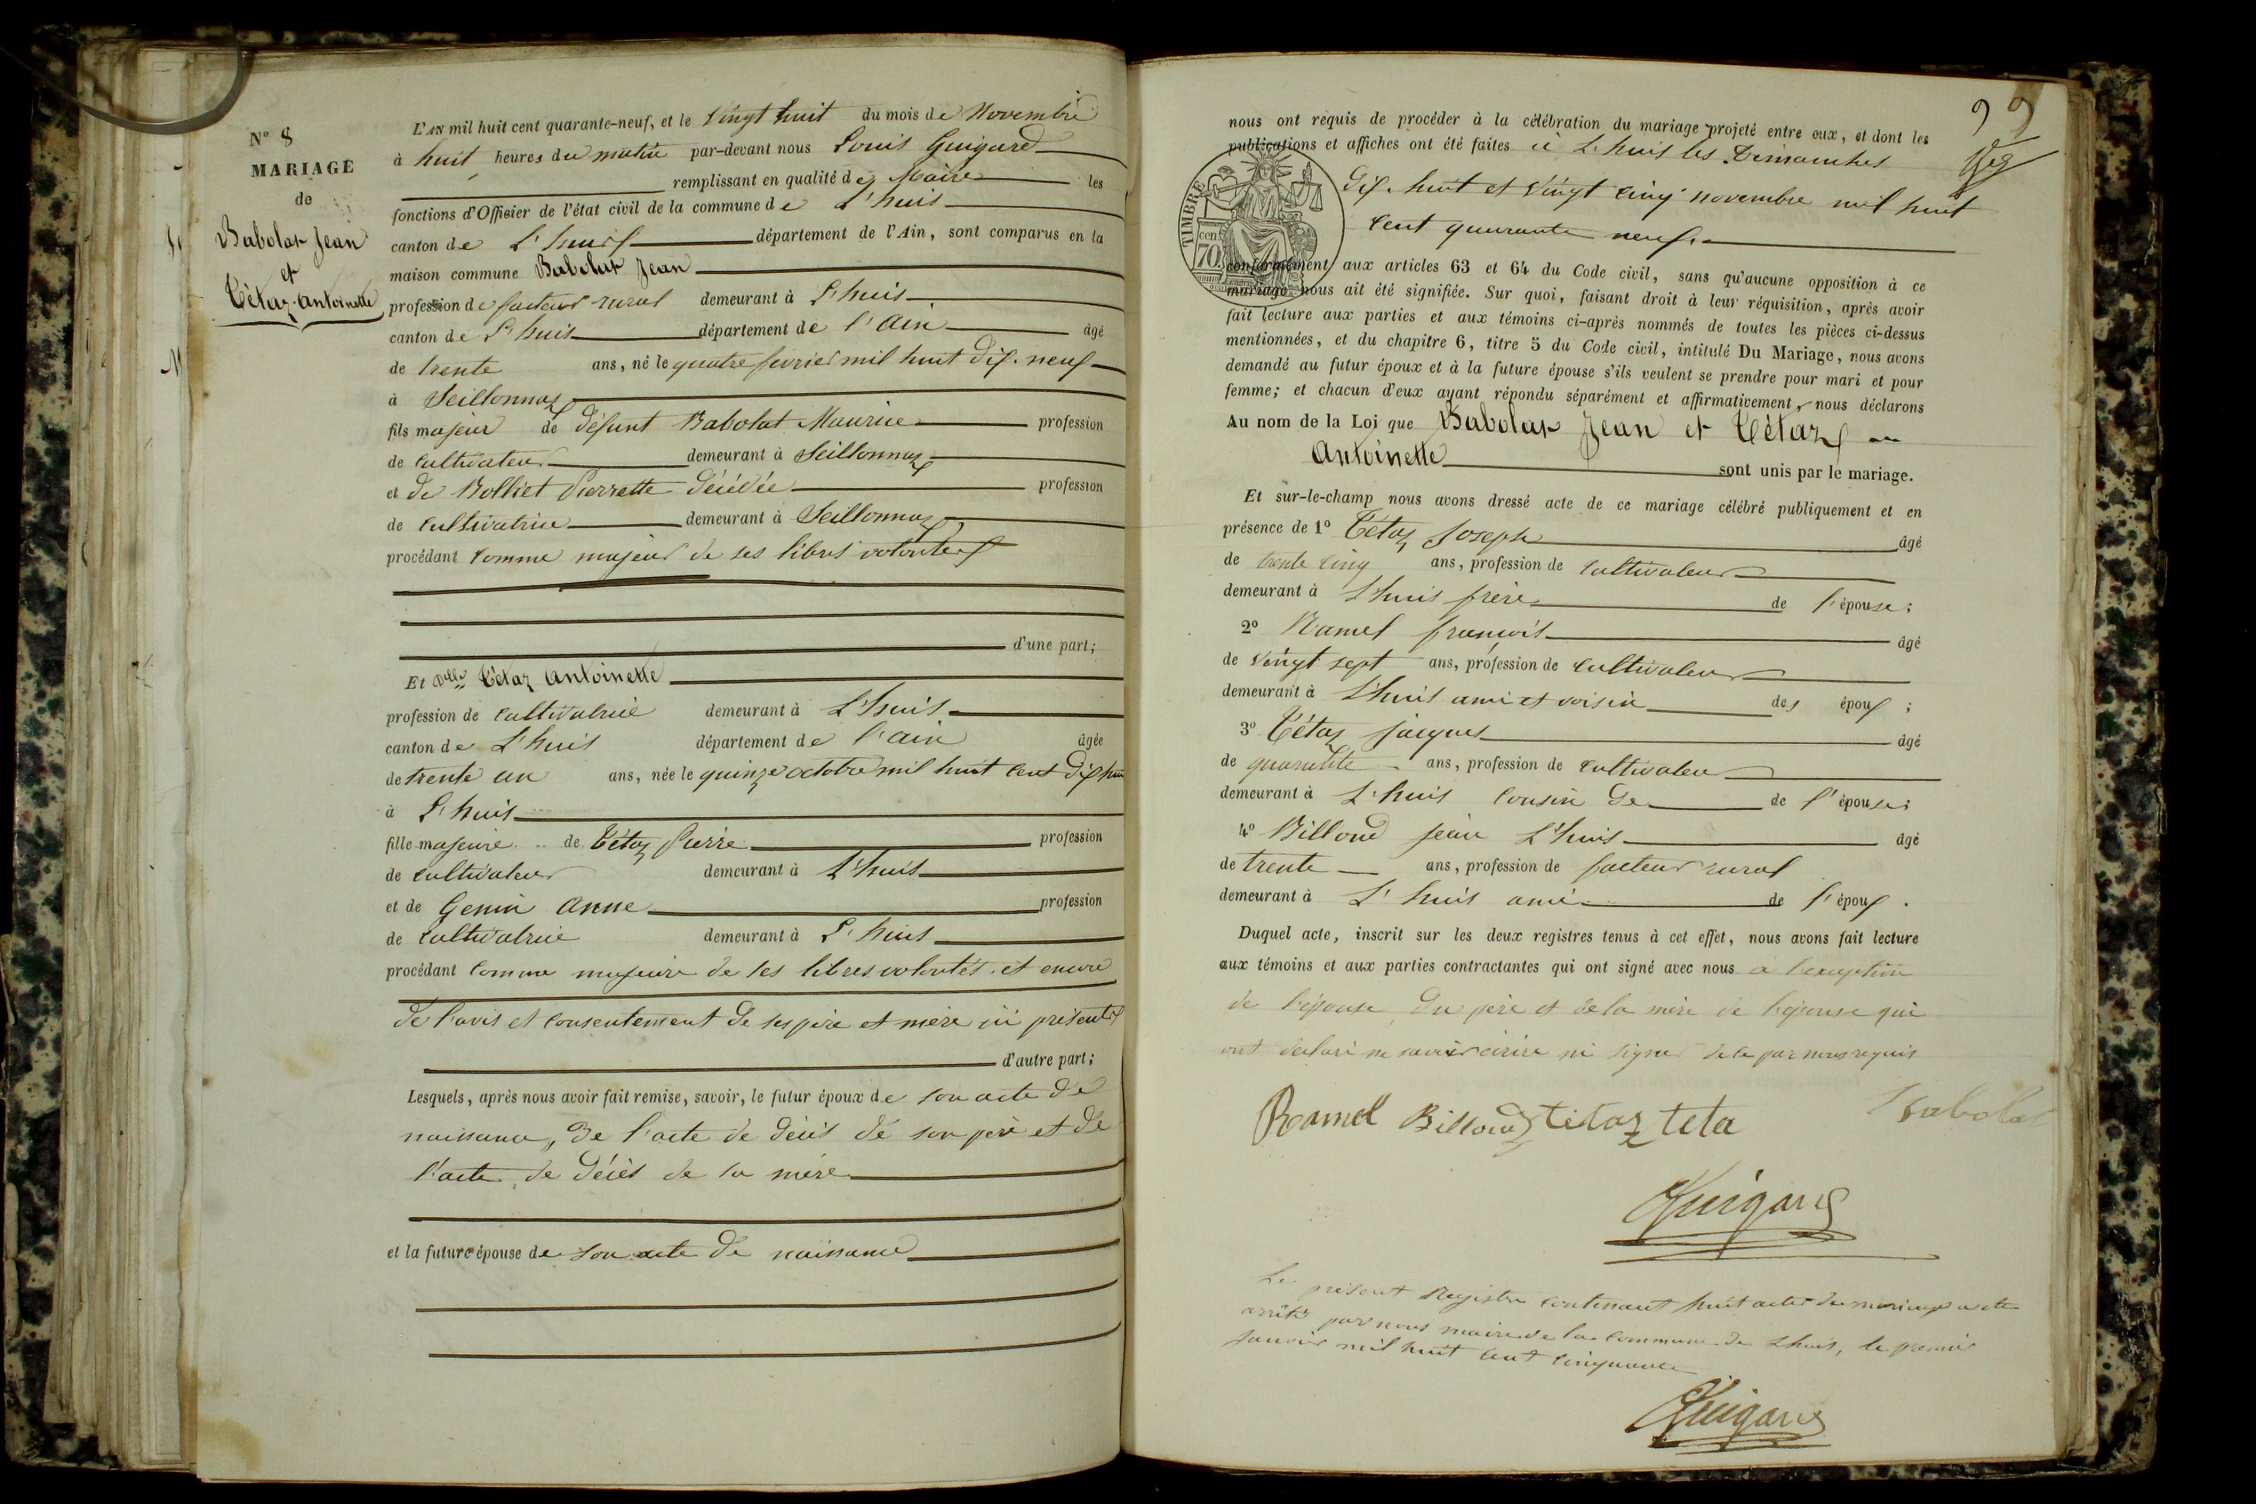 N° 8
MARIAGE
de
Babolat Jean
et
Tétaz Antoinette
L'AN mil huit cent quarante-neuf, et le vingt huit du mois de Novembre
à huit heures du matin par-devant nous Louis Guigard
remplissant en qualité de Maire les
fonctions d'Officier de l'état civil de la commune de L'huis
canton de L'huis département de l'Ain, sont comparus en la
maison commune Babolat Jean
profession de facteur rural demeurant à L'huis
canton de L'huis département de l'Ain âgé
de trente ans, né le quatre fevrier mil huit dix-neuf
à Seillonnaz
fils majeur de défunt Babolat Maurice profession
de cultivateur demeurant à Seillonnaz
et de Bolliet Pierrette décédée profession
de cultivatrice demeurant à Seillonnaz
procédant comme majeur de ses libres volontés
d'une part;
Et Dlle Tétaz Antoinette
profession de cultivatrice demeurant à L'huis
canton de L'huis département de l'ain âgée
de trente un ans, née le quinze octobre mil huit cent dix huit
à L'huis
fille majeure de Tétaz Pierre profession
de cultivateur demeurant à L'huis
et de Genin Anne profession
de cultivatrice demeurant à L'huis
procédant comme majeure de ses libres volontés et encore
de l'avis et consentement de ses père et mère ici présents
d'autre part;
Lesquels, après nous avoir fait remise, savoir, le futur époux de son acte de
naissance, de l'acte de décès de son père et de
l'acte de décès de sa mère
et la future épouse de son acte de naissance
99
nous ont requis de procéder à la célébration du mariage projeté entre eux, et dont les
publications et affiches ont été faites à L'huis les Dimanches
dix-huit et vingt cinq novembre mil huit
cent quarante neuf.
TIMBRE
70 cen
conformément aux articles 63 et 64 du Code civil, sans qu'aucune opposition à ce
mariage nous ait été signifiée. Sur quoi, faisant droit à leur réquisition, après avoir
fait lecture aux parties et aux témoins ci-après nommés de toutes les pièces ci-dessus
mentionnées, et du chapitre 6, titre 5 du Code civil, intitulé Du Mariage, nous avons
demandé au futur époux et à la future épouse s'ils veulent se prendre pour mari et pour
femme; et chacun d'eux ayant répondu séparément et affirmativement, nous déclarons
Au nom de la Loi que Babolat Jean et Tétaz
Antoinette sont unis par le mariage.
Et sur-le-champ nous avons dressé acte de ce mariage célébré publiquement et en
présence de 1° Tétaz Joseph âgé
de trente cinq ans, profession de cultivateur
demeurant à L'huis frère de l'épouse;
2° Ramel françois âgé
de vingt sept ans, profession de cultivateur
demeurant à L'huis ami et voisin des époux;
3° Tétaz Jacques âgé
de quarante ans, profession de cultivateur
demeurant à L'huis cousin de de l'épouse;
4° Billoud Jean L'huis âgé
de trente ans, profession de facteur rural
demeurant à L'huis ami de l'époux.
Duquel acte, inscrit sur les deux registres tenus à cet effet, nous avons fait lecture
aux témoins et aux parties contractantes qui ont signé avec nous a l'exception
de l'épouse du père et de la mère de l'épouse qui
ont déclaré ne savoir écrire ni signer de ce par nous requis
Ramel Billoud tétaz teta Babolat
Guigard
Le présent Registre contenant huit actes de mariage a été
arrêté par nous maire de la commune de Lhuis, le premier
janvier mil huit cent cinquante
Guigard